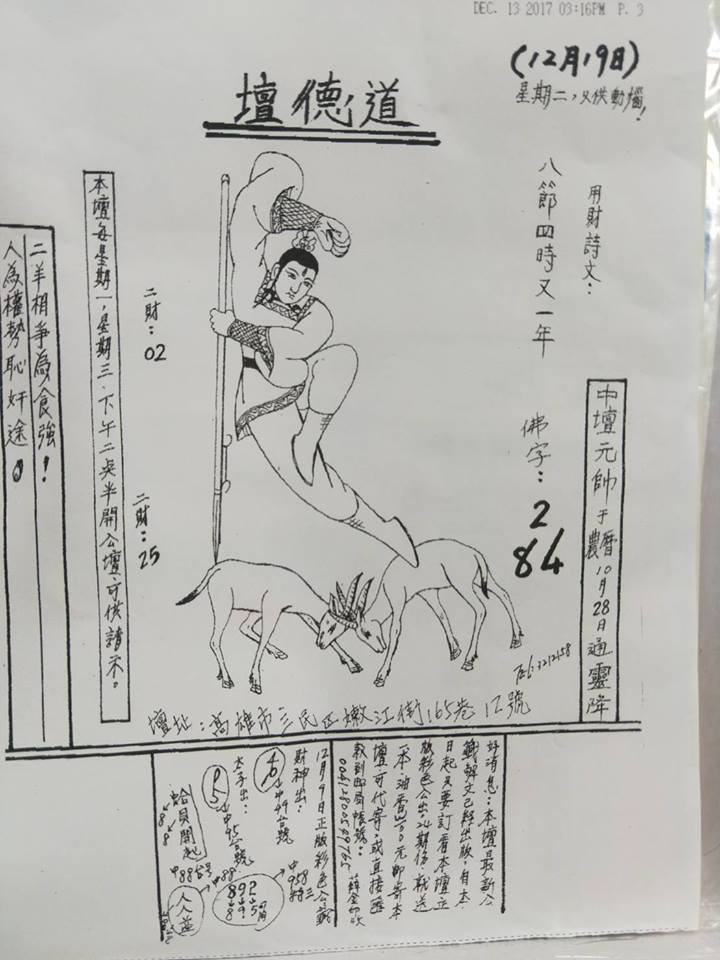 DEC. 13 2017 03:16PM P. 3
(12月19日)
星期二，只供動惱！
道德壇
用財詩文：
八節四時又一年
佛字：
2
84
中壇元帥于農曆10月28日通靈降
二財：02
二財：25
本壇每星期一，星期三．下午二点半開公壇可供諸不。
二羊相爭為食強！
人為權勢恥奸途。
壇址：高雄市三民區嫩江街165巷12號
好消息：本壇最新公
籤解文已經出版，自本
日起只要訂看本壇正
版彩色公出，24期份就送
一本，油香
元即寄本
壇可代寄。或直接匯
款到郵局帳號：
12月9日正版彩色公籤
財神出：
中49台號
太子出：
中95台號
蛤貝開起
中88台号
中89
人人益
892
中958特三